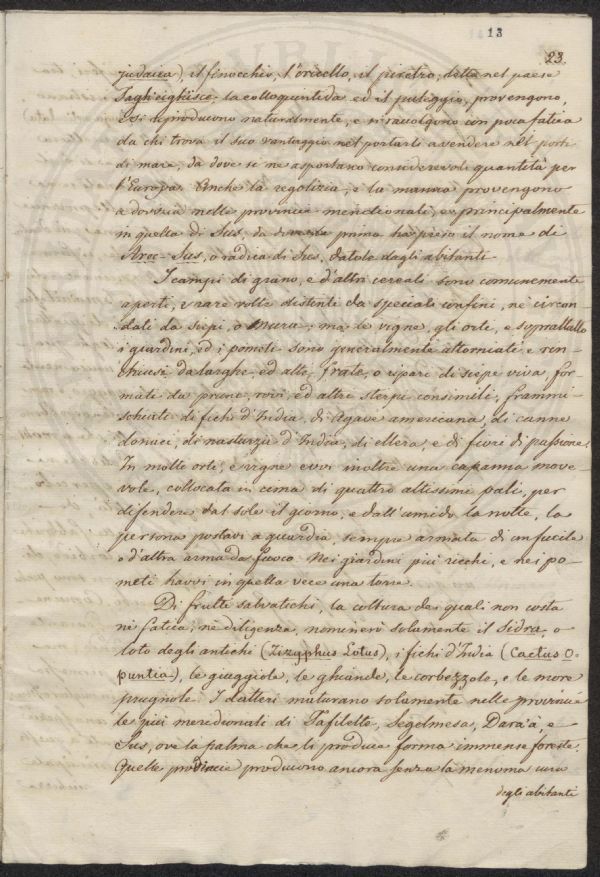 13
23.
judaica), il finocchio, l'oricello, il piretro, detto nel paese
Tagh'eighisce, la colloquintida ed il puleggio, provengono,
Essi si producono naturalmente, e si raccolgono con poca fatica
da chi trova il suo vantaggio nel portarli a vendere nel porti
di mare, da dove se ne asportano considerevoli quantità per
l'Europa. Anche la regolizia, e la manna provengono
a dovizia nelle provincie meridionali, e principalmente
in quella di Sus, da dove la prima ha preso il nome di
Aroc-Sus, o radica di Sus, datole dagli abitanti.
I campi di grano, e d'altri cereali sono comunemente
aperti, e rare volte distinti da speciali confini, nè circon
dati da siepi, o mura; ma le vigne, gli orti, e soprattutto
i giardini, ed i pometi sono generalmente attorniati e rin-
chiusi da larghe, ed alte fratte, o ripari di siepe viva, for
mati da prune, rovi, ed altri sterpi consimili, frammi-
schiati di fichi d'India, di Agave americana, di canne
donaci, di nasturzii d'India, di ellera, e di fiori di passione.
In molti orti, e vigne evvi inoltre una capanna move-
vole, collocata in cima di quattro altissimi pali, per
difendere dal sole il giorno, e dall'umido la notte, la
persona postavi a guardia, sempre armata di un fucile
o d'altra arma da fuoco. Nei giardini più ricchi, e nei po-
meti havvi in quella vece una torre.
Di frutti salvatichi, la coltura dei quali non costa
nè fatica, nè diligenza, nominerò solamente il sidra, o
loto degli antichi (Zizyphus Lotus), i fichi d'India (Cactus O-
puntia), le giuggiole, le ghiande, le corbezzole, e le more
prugnole. I datteri maturano solamente nelle provincie
le più meridionali di Tafilelto, Segelmesa, Dara'a, e
Sus, ove la palma che li produce forma immense foreste.
Quelle provincie producono ancora senza la menoma cura
degli abitanti